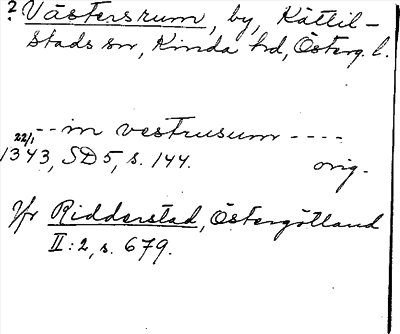 ? Västersrum, by, Kättil-
stads sn, Kinda hd, Österg. l.
-- in vestrusum ----
22/1 1343, SD 5, s. 144. orig.
Jfr Ridderstad, Östergötland
II:2, s. 679.